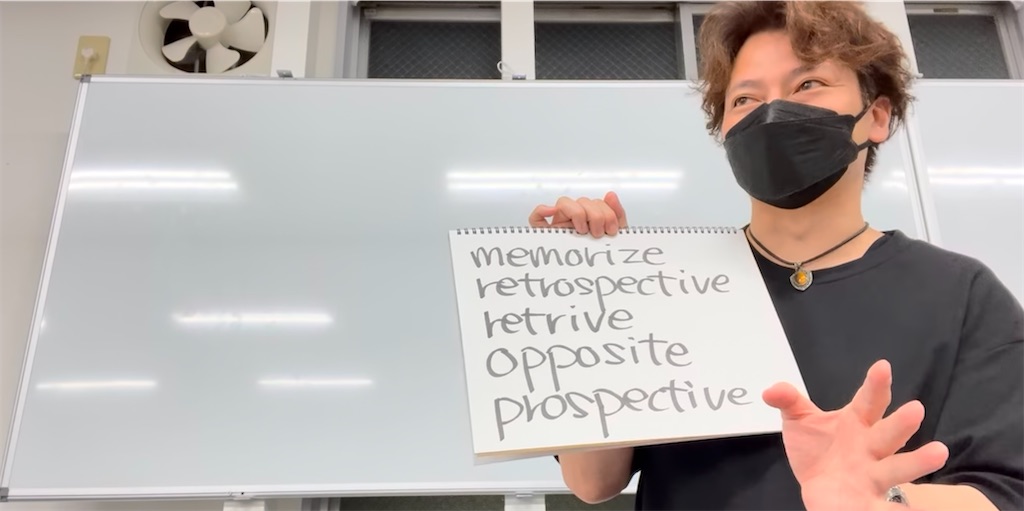 memorize
retrospective
retrive
opposite
prospective